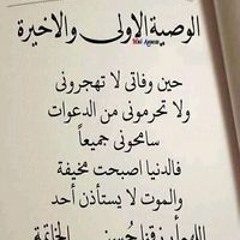 الوصية الاولى والاخيرة
حين وفاتى لا تهجرونى
ولا تحرمونى من الدعوات
سامحونى جميعاً
فالدنيا اصبحت مخيفة
والموت لا يستأذن أحد
اللهم أرزقنا حُسن الخاتمة